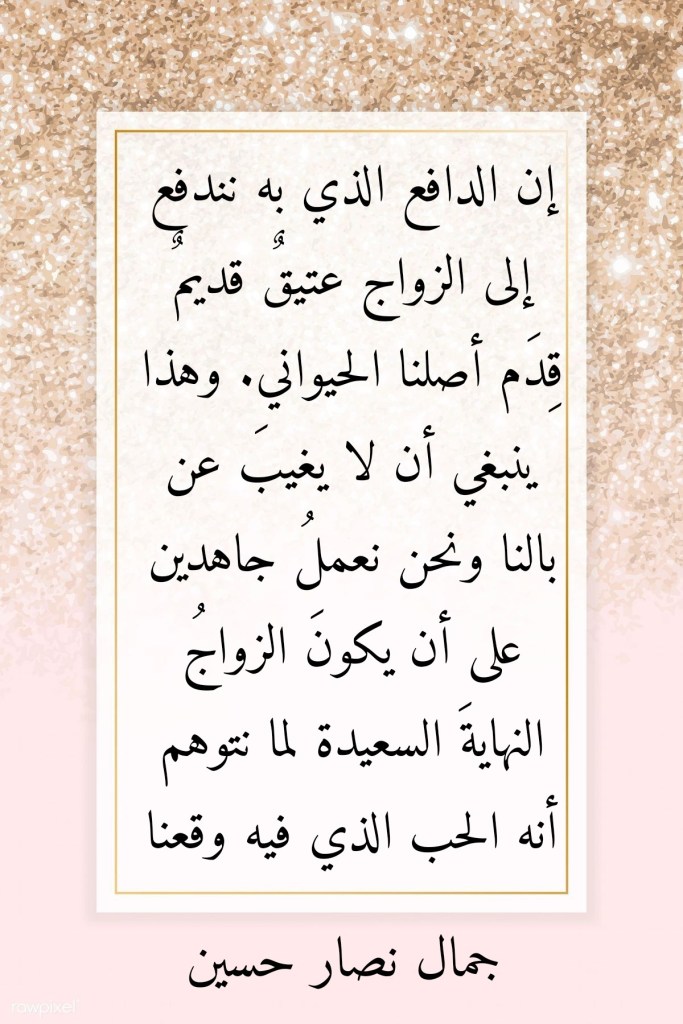 إن الدافع الذي به نندفع
إلى الزواج عتيقٌ قديمٌ
قِدَم أصلنا الحيواني. وهذا
ينبغي أن لا يغيبَ عن
بالنا ونحن نعملُ جاهدين
على أن يكونَ الزواجُ
النهايةَ السعيدة لما نتوهم
أنه الحب الذي فيه وقعنا
جمال نصار حسين
rawpixel